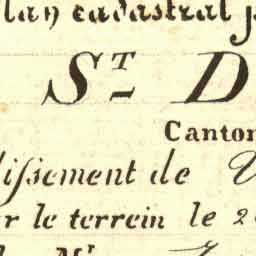 lan cadastral
St D
Canton
dissement de
r le terrein le 2